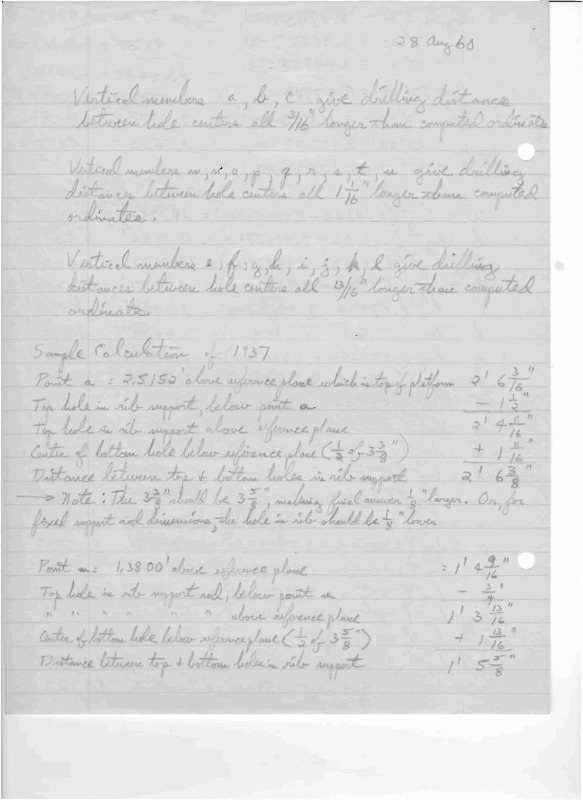 28 Aug 60
Vertical members a, b, c give drilling distances
between hole centers all 3/16" longer than computed ordinates
Vertical members m, n, o, p, q, r, s, t, u give drilling
distances between hole centers all 1 1/16" longer than computed
ordinates.
Vertical members e, f, g, h, i, j, k, l give drilling
distances between hole centers all 13/16" longer than computed
ordinates.
Sample Calculation of 1937
Point a = 2.5152' above reference plane which is top of platform 2' 6 3/16"
Top hole in rib support, below point a - 1 1/2"
Top hole in rib support above reference plane 2' 4 11/16"
Center of bottom hole below reference plane (1/2 of 3 3/8") + 1 11/16"
Distance between top + bottom holes in rib support 2' 6 3/8"
→ Note: The 3 3/8" should be 3 5/8", making final answer 1/8" larger. Or, for
fixed support rod dimensions, the hole in rib should be 1/8" lower
Point m = 1.3800' above reference plane = 1' 4 9/16"
Top hole in rib support rod, below point m - 3/4"
" " " " " " above reference plane 1' 3 13/16"
Center of bottom hole below reference plane (1/2 of 3 5/8") + 1 13/16"
Distance between top + bottom holes in rib support 1' 5 5/8"